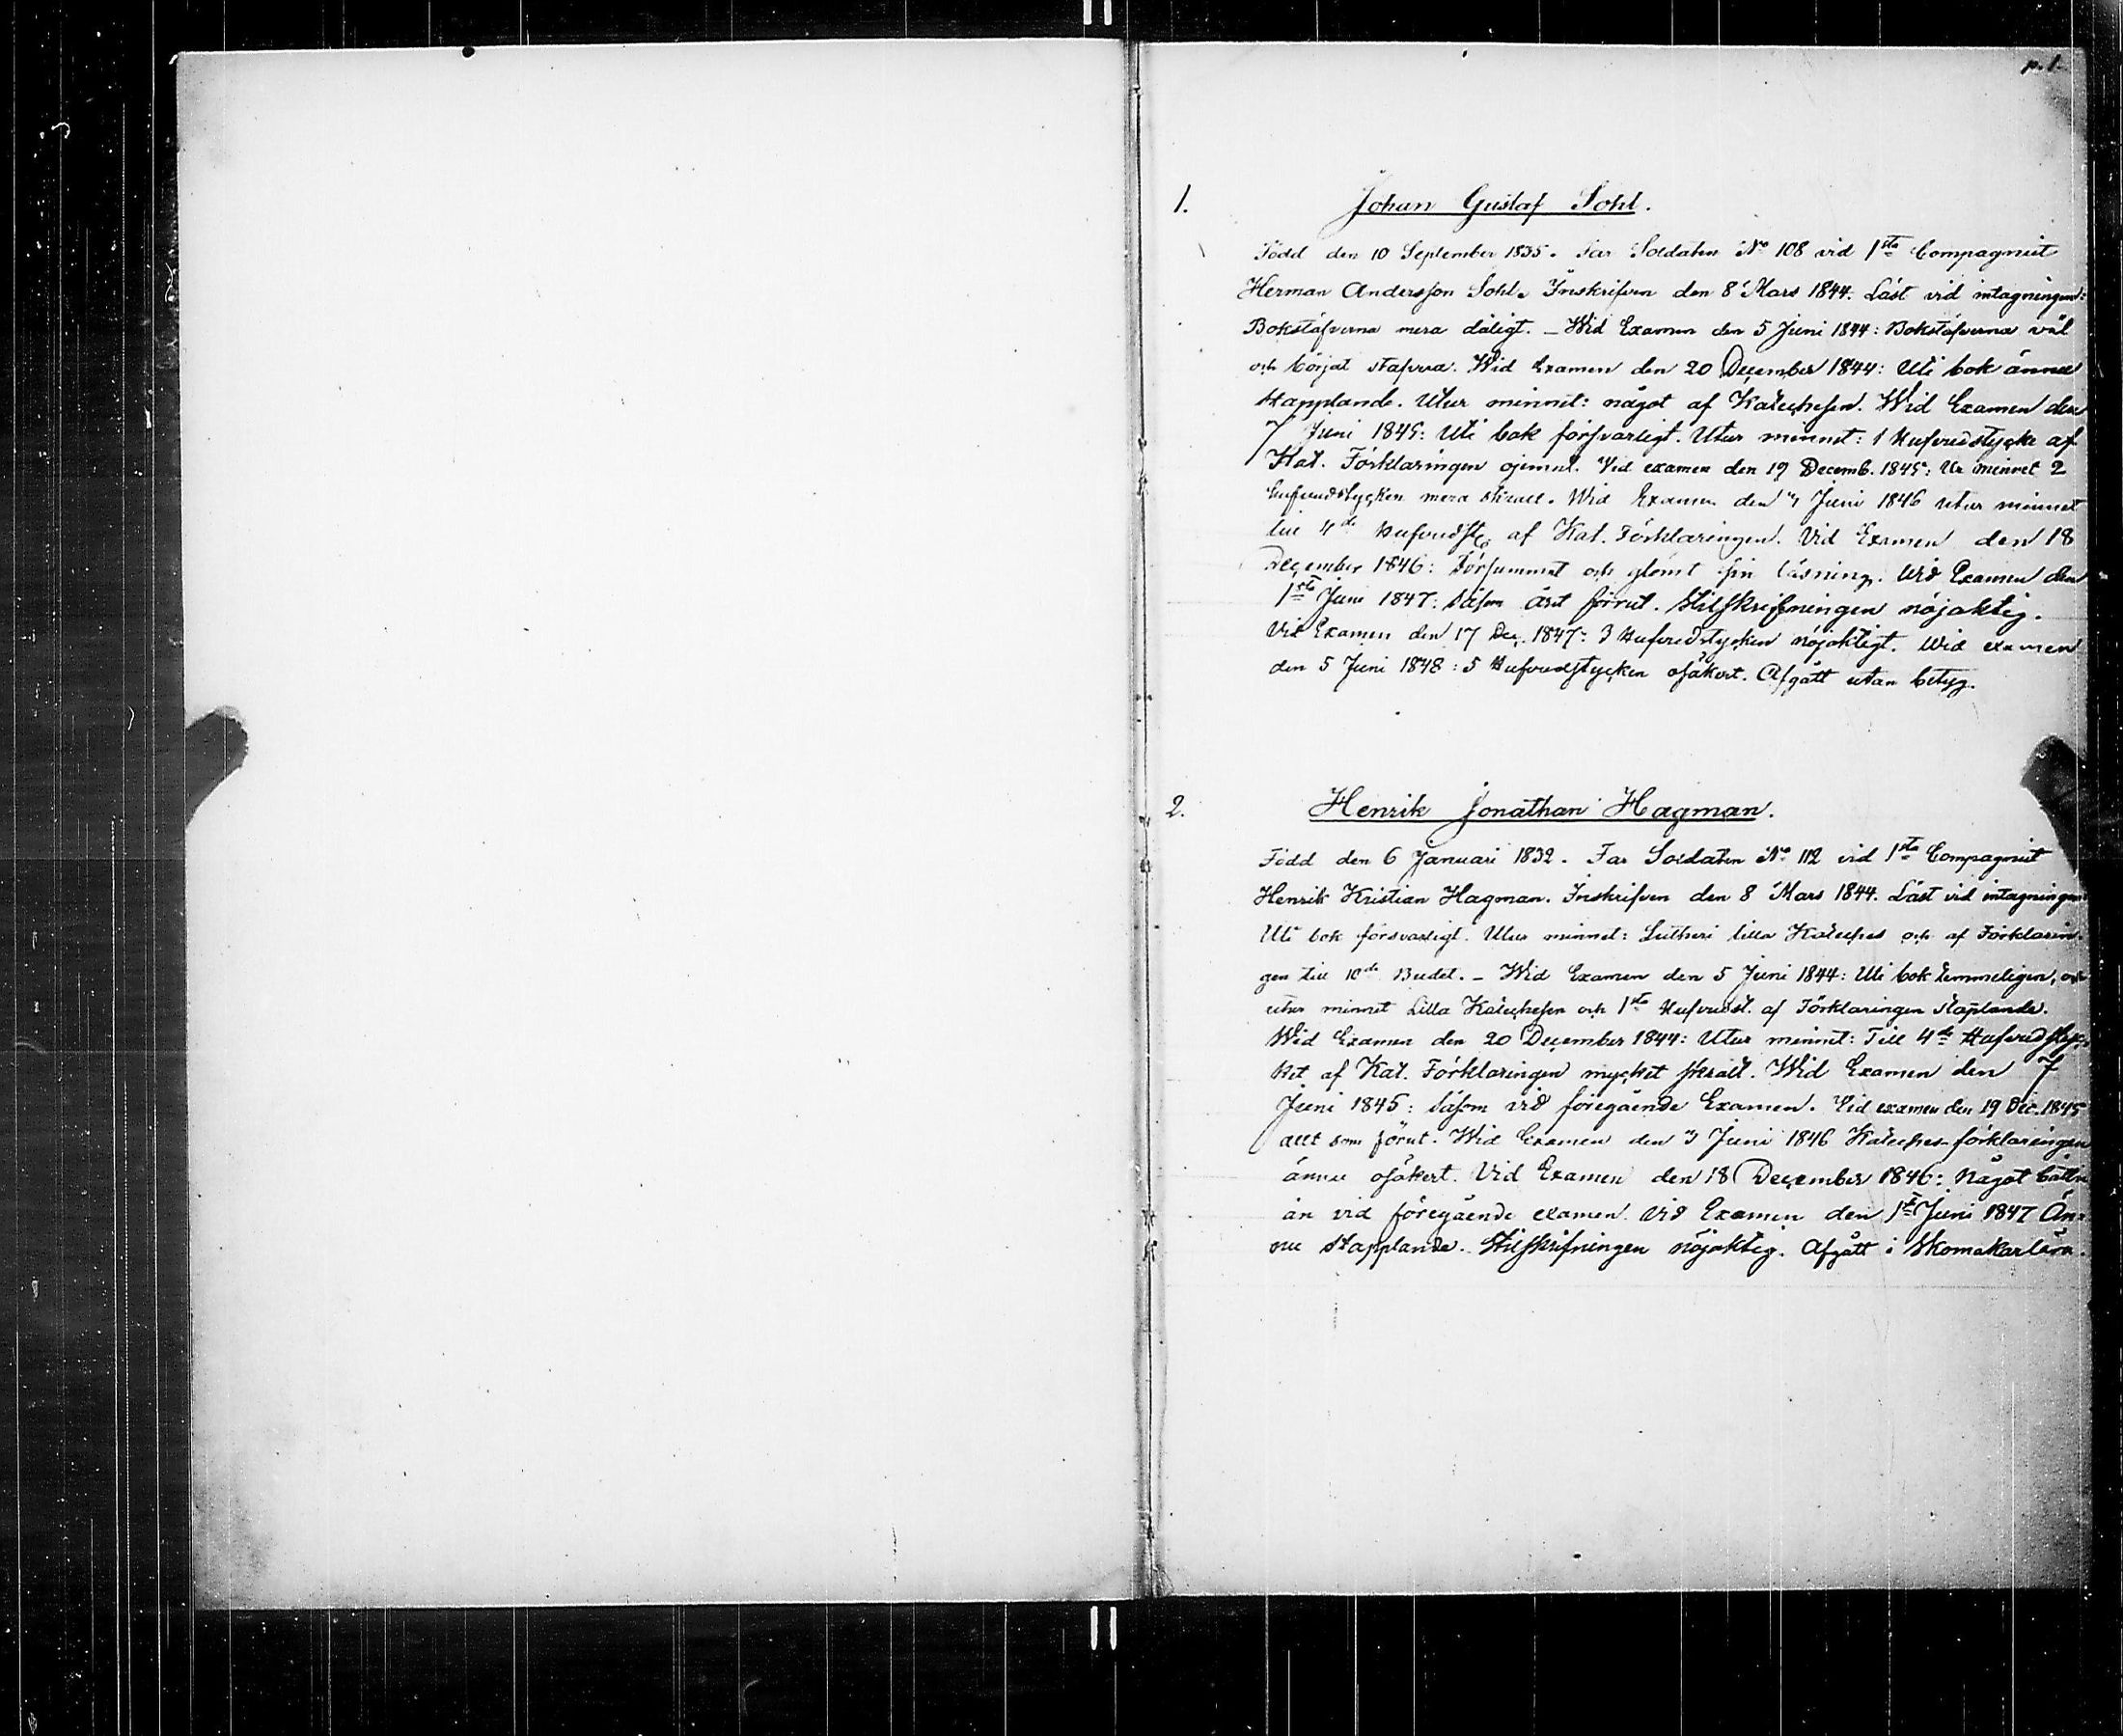 p. 1.
1. Johan Gustaf Sohl.
Född den 10 September 1835. Far Soldaten No 108 vid 1sta Compagniet
Herman Andersson Sohl. Inskrifven den 8 Mars 1844. Läst vid intagningen:
Bokstäfverna mera dåligt. – Wid Examen den 5 Juni 1844: Bokstäfverna väl
och börjat stafvera. Wid Examen den 20 December 1844: Uti bok ännu
stapplande. Utur minnet: något af Katechesen. Wid Examen den
7 Juni 1845: Uti bok försvarligt. Utur minnet: 1 Hufvudstycke af
Kat. Förklaringen ojemnt. Vid examen den 19 Decemb. 1845: Ur minnet 2
hufvudstycken mera skralt. Wid Examen den 3 Juni 1846 utur minnet
till 4de Hufvudst. af Kat. Förklaringen. Vid Examen den 18
December 1846: Försummat och glömt sin läsning. Vid Examen den
1sta Juni 1847: Såsom året förut. Stilskrifningen nöjaktig.
Vid Examen den 17 Dec. 1847: 3 Hufvudstycken nöjaktigt. Wid examen
den 5 Juni 1848: 5 Hufvudstycken osäkert. Afgått utan betyg.
2. Henrik Jonathan Hagman.
Född den 6 Januari 1832. Far Soldaten No 112 vid 1sta Compagniet
Henrik Kristian Hagman. Inskrifven den 8 Mars 1844. Läst vid intagningen
Uti bok försvarligt. Utur minnet: Lutheri lilla Kateches och af Förklarin-
gen till 10de Budet. – Wid Examen den 5 Juni 1844: Uti bok temmeligen, och
utur minnet Lilla Katechesen och 1sta Hufvudst. af Förklaringen staplande.
Wid Examen den 20 December 1844: Utur minnet: Till 4de Hufvudstyc-
ket af Kat. Förklaringen mycket skralt. Wid Examen den 7
Juni 1845: Såsom vid föregående Examen. Vid examen den 19 Dec. 1845
allt som förut. Wid Examen den 3 Juni 1846 Kateches-förklaringen
ännu osäkert. Vid Examen den 18 December 1846: Något bättre
än vid föregående examen. Vid Examen den 1sta Juni 1847 Än-
nu stapplande. Stilskrifningen nöjaktig. Afgått i Skomakarlära.